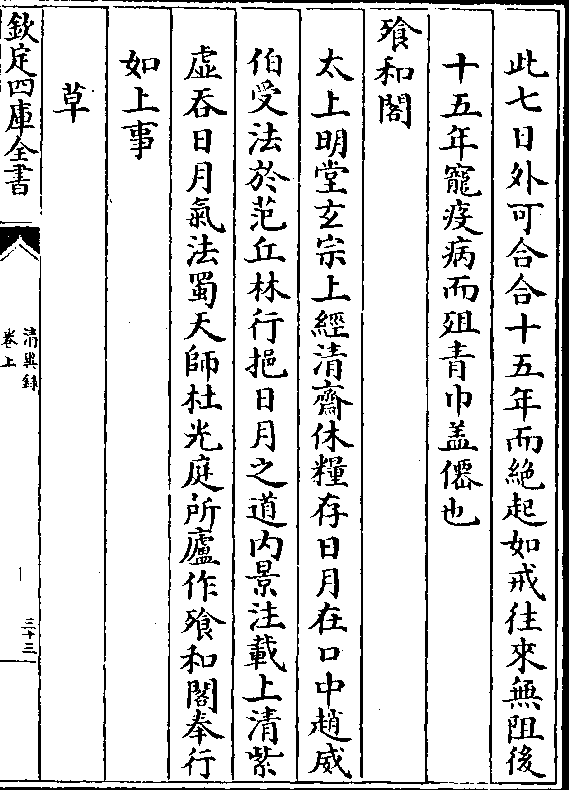 此七日外可合合十五年而絶起如戒往來無阻後
十五年寵疫病而殂青巾盖僊也
飱和閣
太上明堂玄宗上經清齋休糧存日月在口中趙威
伯受法於范丘林行挹日月之道内景注載上清紫
虚吞日月氣法蜀天師杜光庭所廬作飱和閣奉行
如上事
草
欽定四庫全書
清異錄
卷上
三十三